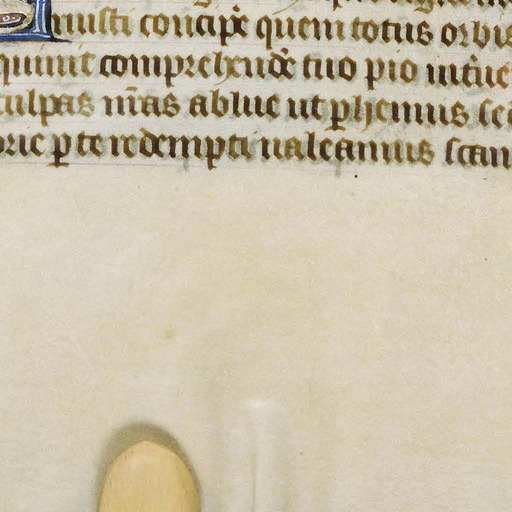 nuisti concip̄e quem totus orbis
quiuit comprehend̄e tuo pio int̄ue
culpas nr̄as ablue ut ꝑhennis sed
orie ꝑ te redempti ualeamus scan